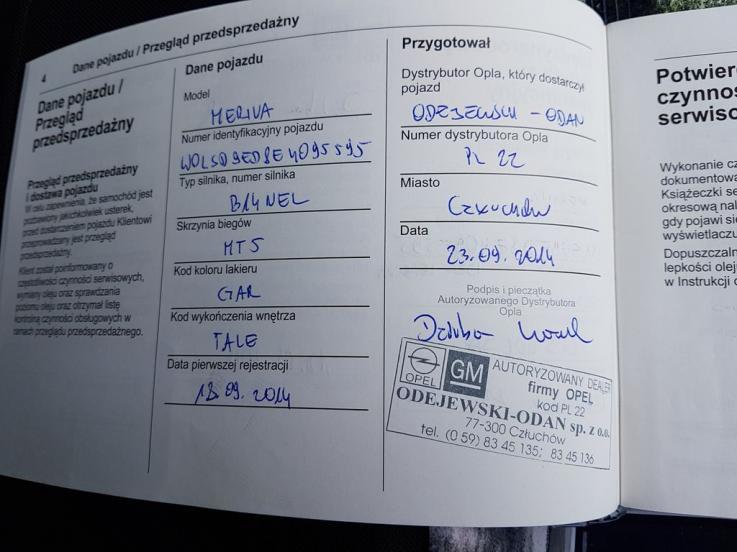 4
Dane pojazdu / Przegląd przedsprzedażny
Dane pojazdu /
Przegląd
przedsprzedażny
Przegląd przedsprzedażny
i dostawa pojazdu
W celu zapewnienia, że samochód jest
pozbawiony jakichkolwiek usterek,
przed dostarczeniem pojazdu Klientowi
przeprowadzany jest przegląd
przedsprzedażny.
Klient został poinformowany o
częstotliwości czynności serwisowych,
wymiany oleju oraz sprawdzania
poziomu oleju oraz otrzymał listę
kontrolną czynności obsługowych w
ramach przeglądu przedsprzedażnego.
Dane pojazdu
Model
MERIVA
Numer identyfikacyjny pojazdu
W0LSD9EDBE4095595
Typ silnika, numer silnika
B14NEL
Skrzynia biegów
MT5
Kod koloru lakieru
GAR
Kod wykończenia wnętrza
TALE
Data pierwszej rejestracji
18.09.2014
Przygotował
Dystrybutor Opla, który dostarczył
pojazd
ODEJEWSKI - ODAN
Numer dystrybutora Opla
PL 22
Miasto
Człuchów
Data
23.09.2014
Podpis i pieczątka
Autoryzowanego Dystrybutora
Opla
OPEL
GM
AUTORYZOWANY DEALER
firmy OPEL
kod PL 22
ODEJEWSKI-ODAN sp. z o.o.
77-300 Człuchów
tel. (0 59) 83 45 135; 83 45 136
Potwier
czynnoś
serwiso
Wykonanie cz
dokumentowa
Książeczki se
okresową nal
gdy pojawi się
wyświetlaczu
Dopuszczaln
lepkości oleju
w Instrukcji o